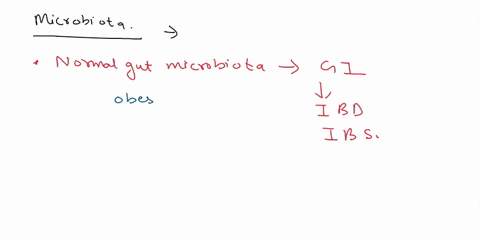 Microbiota. →
• Normal gut microbiota → GI
↓
obes IBD
IBS.